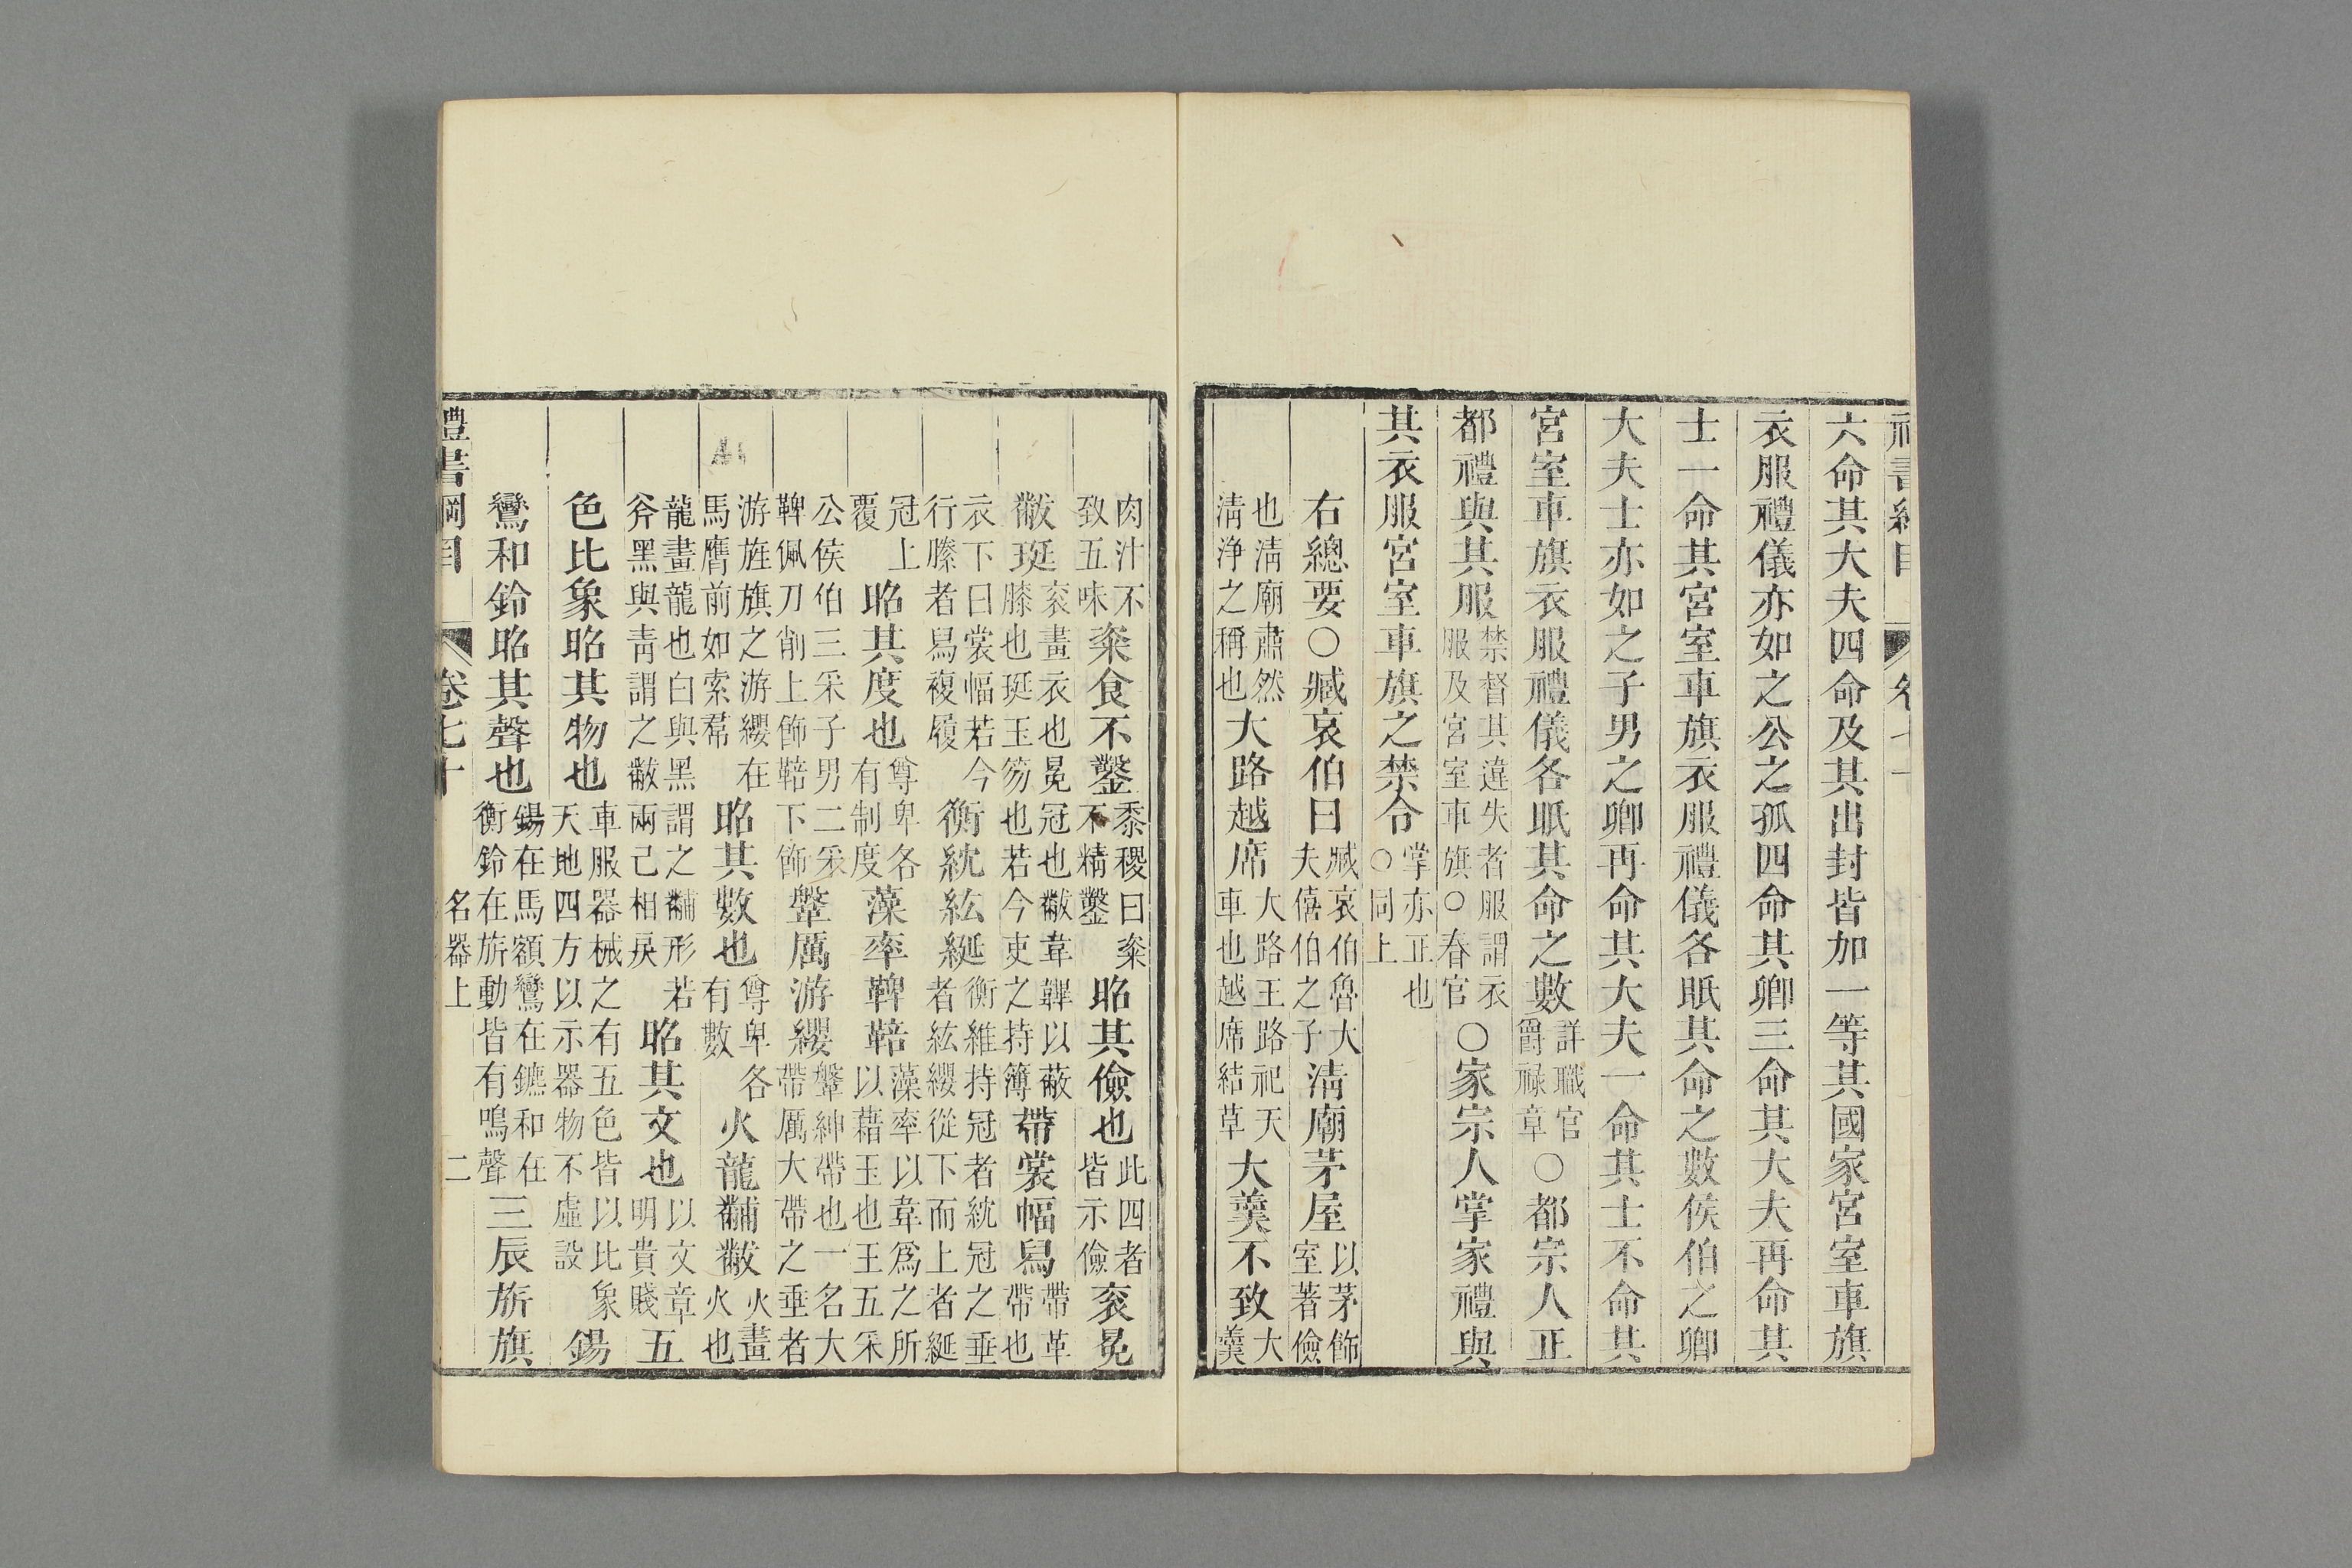 六命其大夫四命及其出封皆加一等其國家宮室車旗
衣服禮儀亦如之公之孤四命其卿三命其大夫再命其
士一命其宮室車旗衣服禮儀各眡其命之數侯伯之卿
大夫士亦如之子男之卿再命其大夫一命其士不命其
宮室車旗衣服禮儀各眡其命之數詳職官爵祿章○都宗人正
都禮與其服禁督其違失者服謂衣服及宮室車旗○春官○家宗人掌家禮與
其衣服宮室車旗之禁令掌亦正也○同上
右總要○臧哀伯曰臧哀伯魯大夫僖伯之子清廟茅屋以茅飾室著儉
也清廟肅然清淨之稱也大路越席大路王路祀天車也越席結草大羹不致大羹
肉汁不致五味粢食不鑿黍稷曰粢不精鑿昭其儉也此四者皆示儉袞冕
黻珽袞畫衣也冕冠也黻韋韠以蔽膝也珽玉笏也若今吏之持簿帶裳幅舄帶革帶也
衣下曰裳幅若今行縢者舄複履衡紞紘綖衡維持冠者紞冠之垂者紘纓從下而上者綖
冠上覆昭其度也尊卑各有制度藻率鞞鞛藻率以韋爲之所以藉玉也王五采
公侯伯三采子男二采鞞佩刀削上飾鞛下飾鞶厲游纓鞶紳帶也一名大帶厲大帶之垂者
游旌旗之游纓在馬膺前如索帬昭其數也尊卑各有數火龍黼黻火畫火也
龍畫龍也白與黑謂之黼形若斧黑與靑謂之黻兩己相戾昭其文也以文章明貴賤五
色比象昭其物也車服器械之有五色皆以比象天地四方以示器物不虛設錫
鸞和鈴昭其聲也錫在馬額鸞在鑣和在衡鈴在旂動皆有鳴聲三辰旂旗
禮書綱目 卷七十 名器上 二